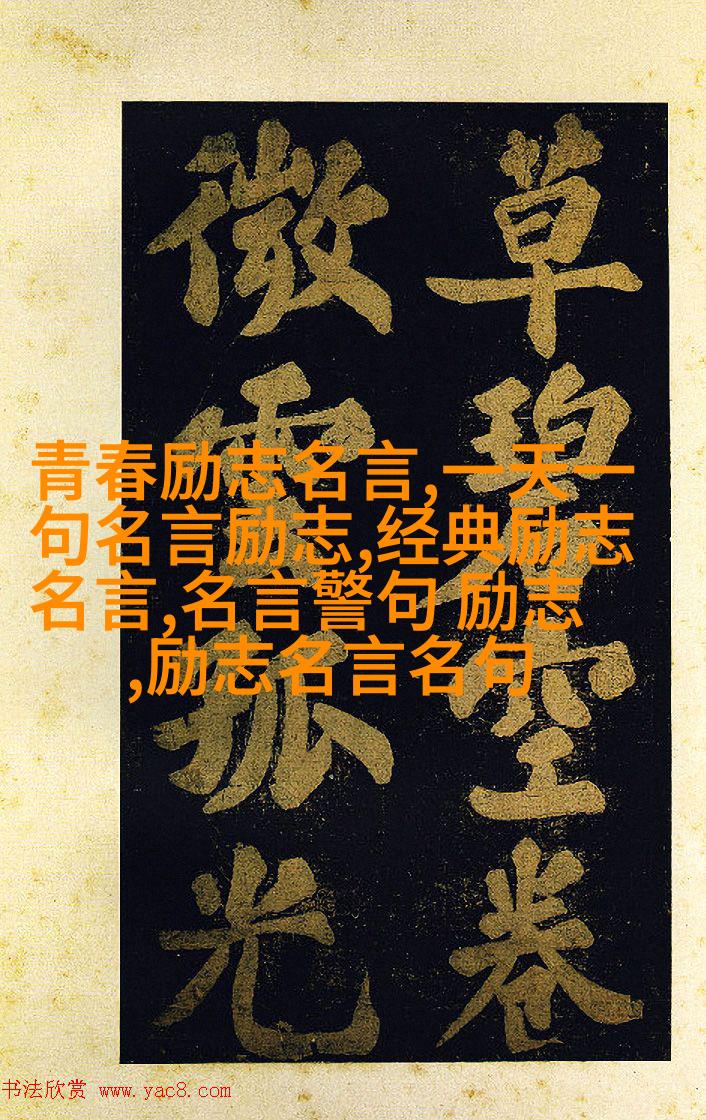 草碧空卷
微雲孤光
青春励志名言,一天一
句名言励志,经典励志
名言,名言警句 励志
,励志名言名句
书法欣赏 www.yac8.com